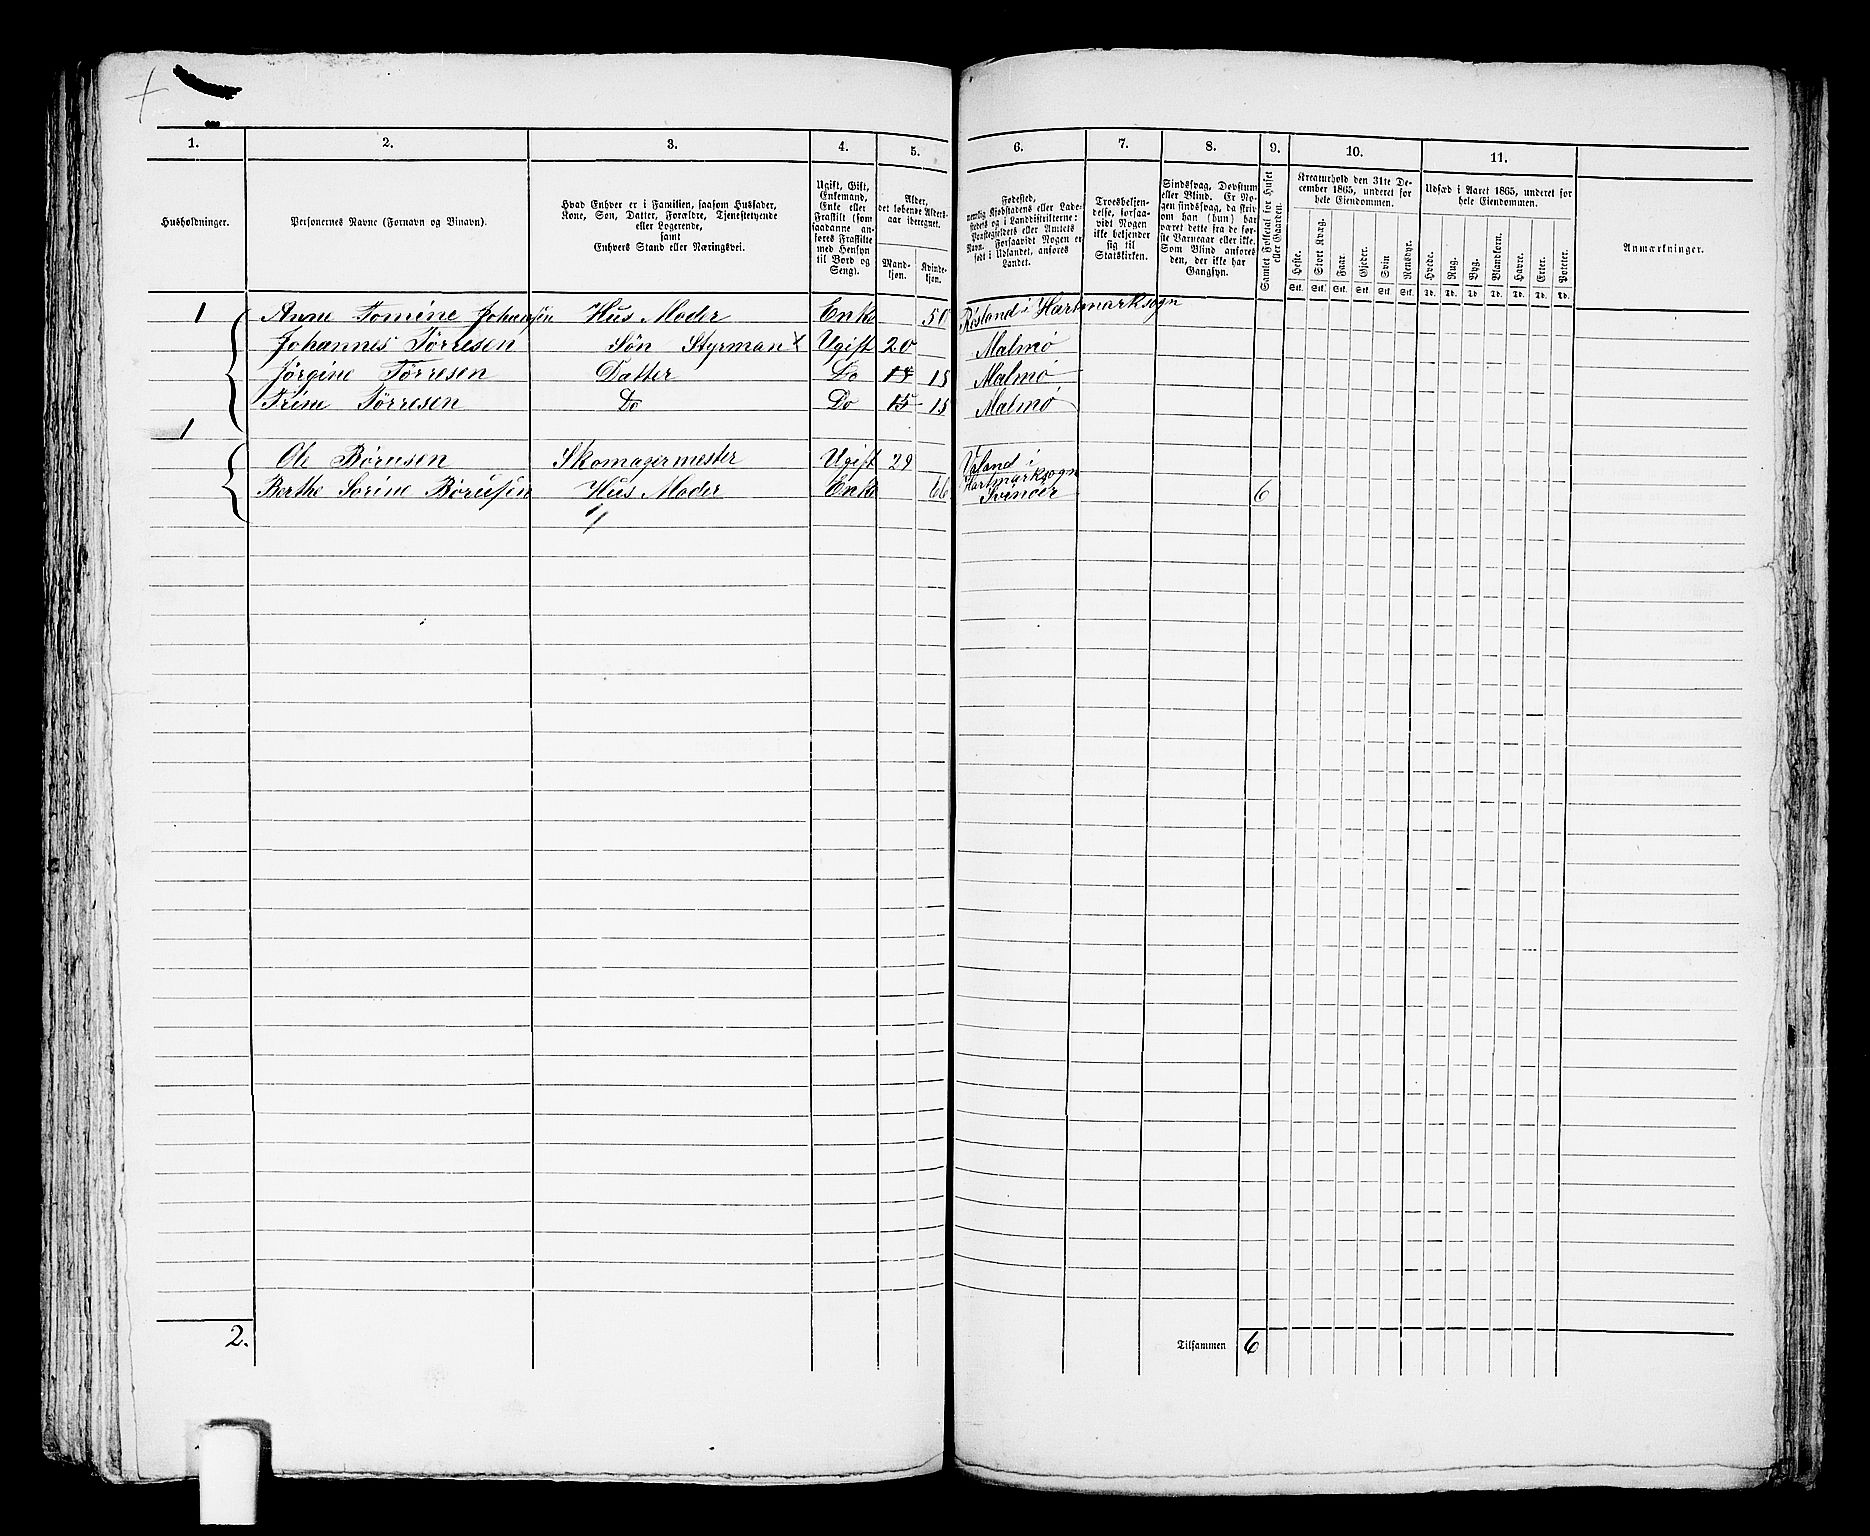 1. 2. 3. 4. 5. 6. 7. 8. 9. 10. 11.
Husholdninger.
Personernes Navne (Fornavn og Binavn).
Hvad Enhver er i Familien, saasom Husfader,
Kone, Søn, Datter, Forældre, Tjenestetyende
eller Logerende,
samt
Enhvers Stand eller Næringsvei.
Ugift, Gift,
Enkemand,
Enke eller
Fraskilt (som
saadanne an-
føres Fraskilte
med Hensyn
til Bord og
Seng).
Alder,
det løbende Alders-
aar iberegnet.
Mand-
kjøn.
Kvinde-
kjøn.
Fødested,
nemlig Kjøbstadens eller Lade-
stedets og i Landdistrikterne:
Præstegjeldets eller Amtets
Navn. Forsaavidt Nogen er
født i Udlandet, anføres
Landet.
Troesbekjen-
delse, forsaa-
vidt Nogen
ikke bekjender
sig til
Statskirken.
Sindssvag, Døvstum
eller Blind. Er No-
gen sindssvag, da skriv
om han (hun) har
været dette fra de før-
ste Barneaar eller ikke.
Som Blind anføres
den, der ikke har
Gangsyn.
Samlet Folketal for Huset
eller Gaarden.
Kreaturhold den 31te De-
cember 1865, underet for
hele Eiendommen.
Heste. Stort Kvæg. Faar. Gjeder. Svin Rensdyr.
Stk. Stk. Stk. Stk. Stk. Stk.
Udsæd i Aaret 1865, underet for
hele Eiendommen.
Hvede. Rug. Byg. Blandkorn. Havre. Erter. Poteter.
Td. Td. Td. Td. Td. Td. Td.
Anmærkninger.
1 Anne Tomine Johansen Hus Moder Enke 50 Røsland i Hartmarksogn
Johannes Tørresen Søn Styrman x Ugift 20 Malmø
Jørgine Tørresen Datter Do 15 Malmø
Trine Tørresen Do Do 15 15 Malmø
1
Ole Børresen Skomagermester Ugift 29 Valand i
Hartmarksogn
Berthe Sorine Børresen Hus Moder Enke 66 Svinoer 6
2.
Tilsammen 6